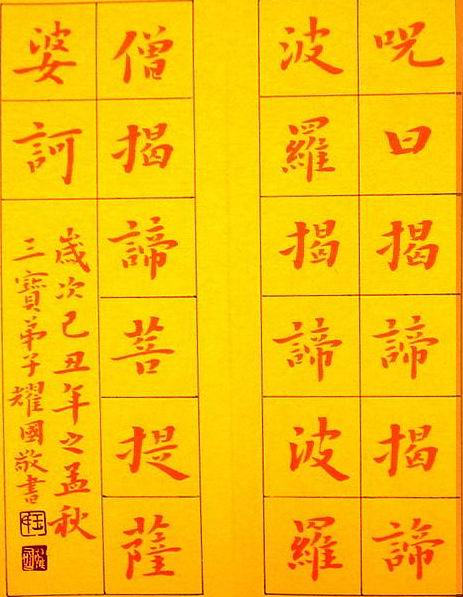 呪曰揭諦揭諦
波羅揭諦波羅
僧揭諦菩提薩
婆訶
歲次己丑年之孟秋
三寶弟子耀國敬書